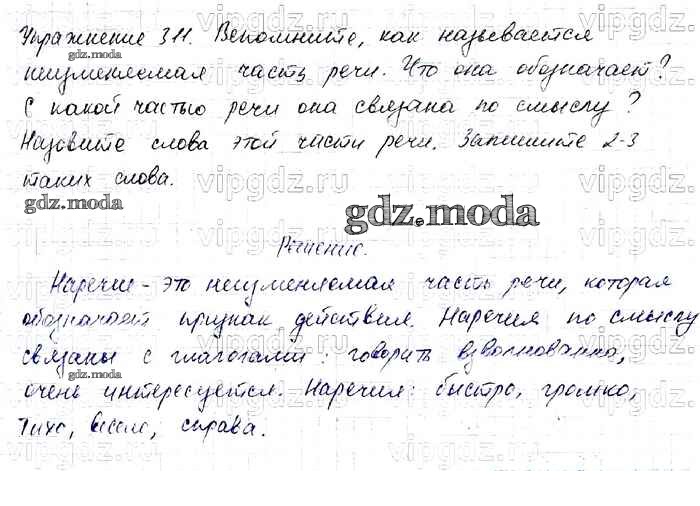 Упражнение 311. Вспомните, как называется
неизменяемая часть речи. Что она обозначает?
С какой частью речи она связана по смыслу?
Назовите слова этой части речи. Запишите 2-3
таких слова.
Решение.
Наречие - это неизменяемая часть речи, которая
обозначает признак действия. Наречия по смыслу
связаны с глаголами: говорить взволнованно,
очень интересуется. Наречия: быстро, громко,
тихо, весело, справа.
gdz.moda
gdz.moda
gdz.moda
gdz.moda
vipgdz.ru